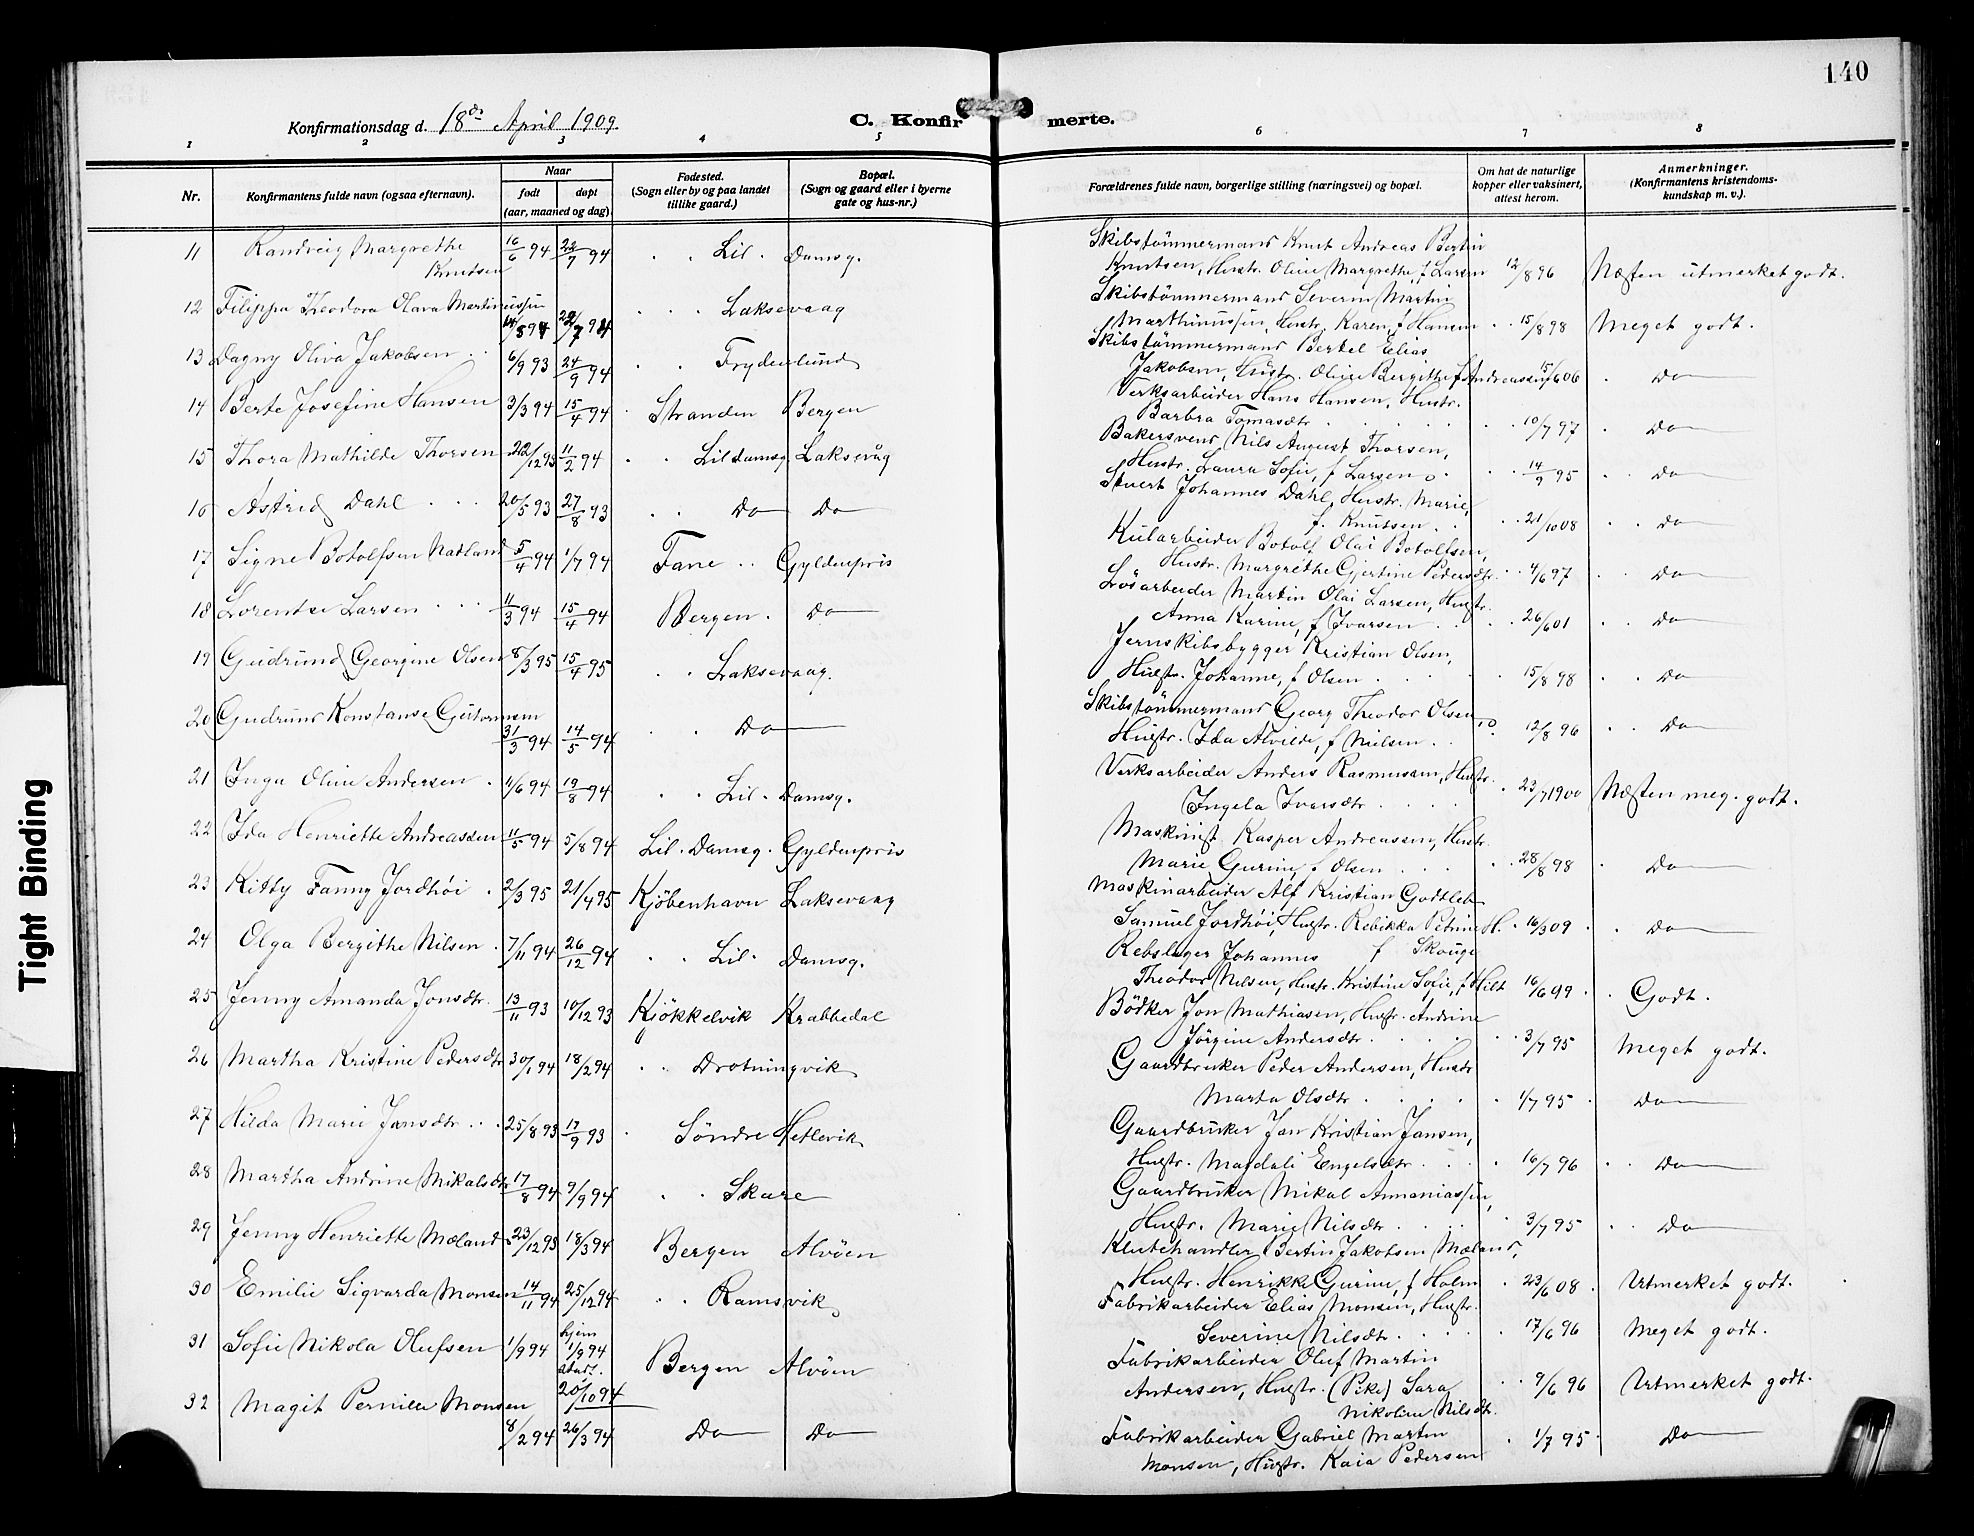 140
Konfirmationsdag d. 18de April 1909
C. Konfirmerte.
1 2 3 4 5 6 7 8
Nr.
Konfirmantens fulde navn (ogsaa efternavn).
Naar
født
døpt
(aar, maaned og dag).
Fødested.
(Sogn eller by og paa landet
tillike gaard.)
Bopæl.
(Sogn og gaard eller i byerne
gate og hus-nr.)
Forældrenes fulde navn, borgerlige stilling (næringsvei) og bopæl.
Om hat de naturlige
kopper eller vaksinert,
attest herom.
Anmerkninger.
(Konfirmantens kristendoms-
kundskap m. v.).
11 Randveig Margrethe Knutsen 16/6 94 22/7 94 Lil. Damsg. Skibstömmermand Knut Andreas Bertin
Knutsen, Hustr. Oline Margrethe, f. Larsen 12/8 96 Næsten utmerket godt.
12 Filippa Theodora Olava Martinussen 14/5 94 22/7 94 Laksevaag Skibstömmermand Severin Martin
Marthinussen, Hustr. Karen, f. Hansen 15/8 98 Meget godt.
13 Dagny Oliva Jakobsen 6/9 93 24/9 94 Frydenlund Skibstömmermand Bertel Elias
Jakobsen, Hustr. Oline Bergithe f. Andreassen 15/6 06 Do
14 Berte Josefine Hansen 3/3 94 15/4 94 Stranden Bergen Verksarbeider Hans Hansen, Hustr.
Barbra Tomasdtr 10/7 97 Do
15 Thora Mathilde Thorsen 22/12 93 11/2 94 Lil damsg. Laksevåg Bakersvend Nils August Thorsen,
Hustr. Laura Sofie, f. Larsen 14/9 95 Do
16 Astrid Dahl 20/5 93 27/8 93 Do Do Stuert Johannes Dahl, Hustr. Marie,
f. Knutsen 21/10 08 Do
17 Signe Botolfsen Natland 5/4 94 1/7 94 Fane Gyldenpris Kularbeider Botolf Olai Botolfsen,
Hustr. Margrethe Gjertine Pedersdtr. 4/6 97 Do
18 Lorentse Larsen 11/3 94 15/4 94 Bergen Do Lösarbeider Martin Olai Larsen, Hustr.
Anna Karine, f. Ivarsen 26/6 01 Do
19 Gudrund Georgine Olsen 8/3 95 15/4 95 Laksevaag. Jernskibsbygger Kristian Olsen,
Hustr. Johanne, f. Olsen 15/8 98 Do
20 Gudrund Konstanse Gutormsen 31/3 94 14/5 94 Do Skibstömmermand Georg Theodor Olsen,
Hustr. Ida Alvilde, f. Nielsen 12/8 96 Do
21 Inga Oline Andersen 11/6 94 19/8 94 Lil. Damsg. Verksarbeider Anders Rasmussen, Hustr.
Ingela Ivarsdtr 23/7 1900 Næsten meg. godt.
22 Ida Henriette Andreassen 11/5 94 5/8 94 Lil. Damsg. Gyldenpris Maskinist Kasper Andreassen, Hustr.
Marie Gurine, f. Olsen 28/8 98 Do
23 Kitty Fanny Jordhöi 2/3 95 21/4 95 Kjöbenhavn Laksevaag Maskinarbeider Alf Kristian Godtleb
Samuel Jordhöi, Hustr. Rebikka Petrine H. f. Skouge 16/3 09 Do
24 Olga Bergithe Nilsen 7/11 94 26/12 94 Lil. Damsg. Rebslager Johannes
Theodor Nilsen, Hustr. Kristine Sofie, f. Hilt 16/6 99 Godt.
25 Jenny Amanda Jonsdtr. 13/11 93 10/12 93 Kjökkelvik Krabbedal Bödker Jon Mathiasen, Hustr. Andrine
Jörgine Andersdtr. 3/7 95 Meget godt.
26 Martha Kristine Pedersdtr 30/1 94 18/2 94 Drotningvik Gaardbruker Peder Andersen, Hustr
Marta Olsdtr 1/7 95 Do
27 Hilda Marie Jansdtr 25/8 93 17/9 93 Söndre Hetlevik Gaardbruker Jan Kristian Jansen,
Hustr. Magdali Engelsdtr 16/7 96 Do
28 Martha Andrine Mikalsdtr 17/8 94 9/9 94 Skare Gaardbruker Mikal Annaniassen,
Hustr. Marie Nilsdtr 3/7 95 Do
29 Jenny Henriette Mæland 23/12 93 18/3 94 Bergen Alvöen Klutehandler Bertin Jakobsen Mæland,
Hustr. Henrikke Gurine, f. Holm 23/6 08 Utmerket godt.
30 Emilie Sigvarda Monsen 14/11 94 25/12 94 Ramsvik Fabrikarbeider Elias Monsen, Hustr.
Severine Nilsdtr 17/6 96 Meget godt.
31 Sofie Nikola Olufsen 1/9 94 hjem 1/9 94 stadf. 20/10 94 Bergen Alvöen Fabrikarbeider Oluf Martin
Andersen, Hustr. (Pike) Sara Nikoline Nilsdtr. 9/6 96 Utmerket godt.
32 Magit Pernille Monsen 8/2 94 26/3 94 Do Do Fabrikarbeider Gabriel Martin
Monsen, Hustr. Kaia Pedersen 1/7 95 Do
Tight Binding